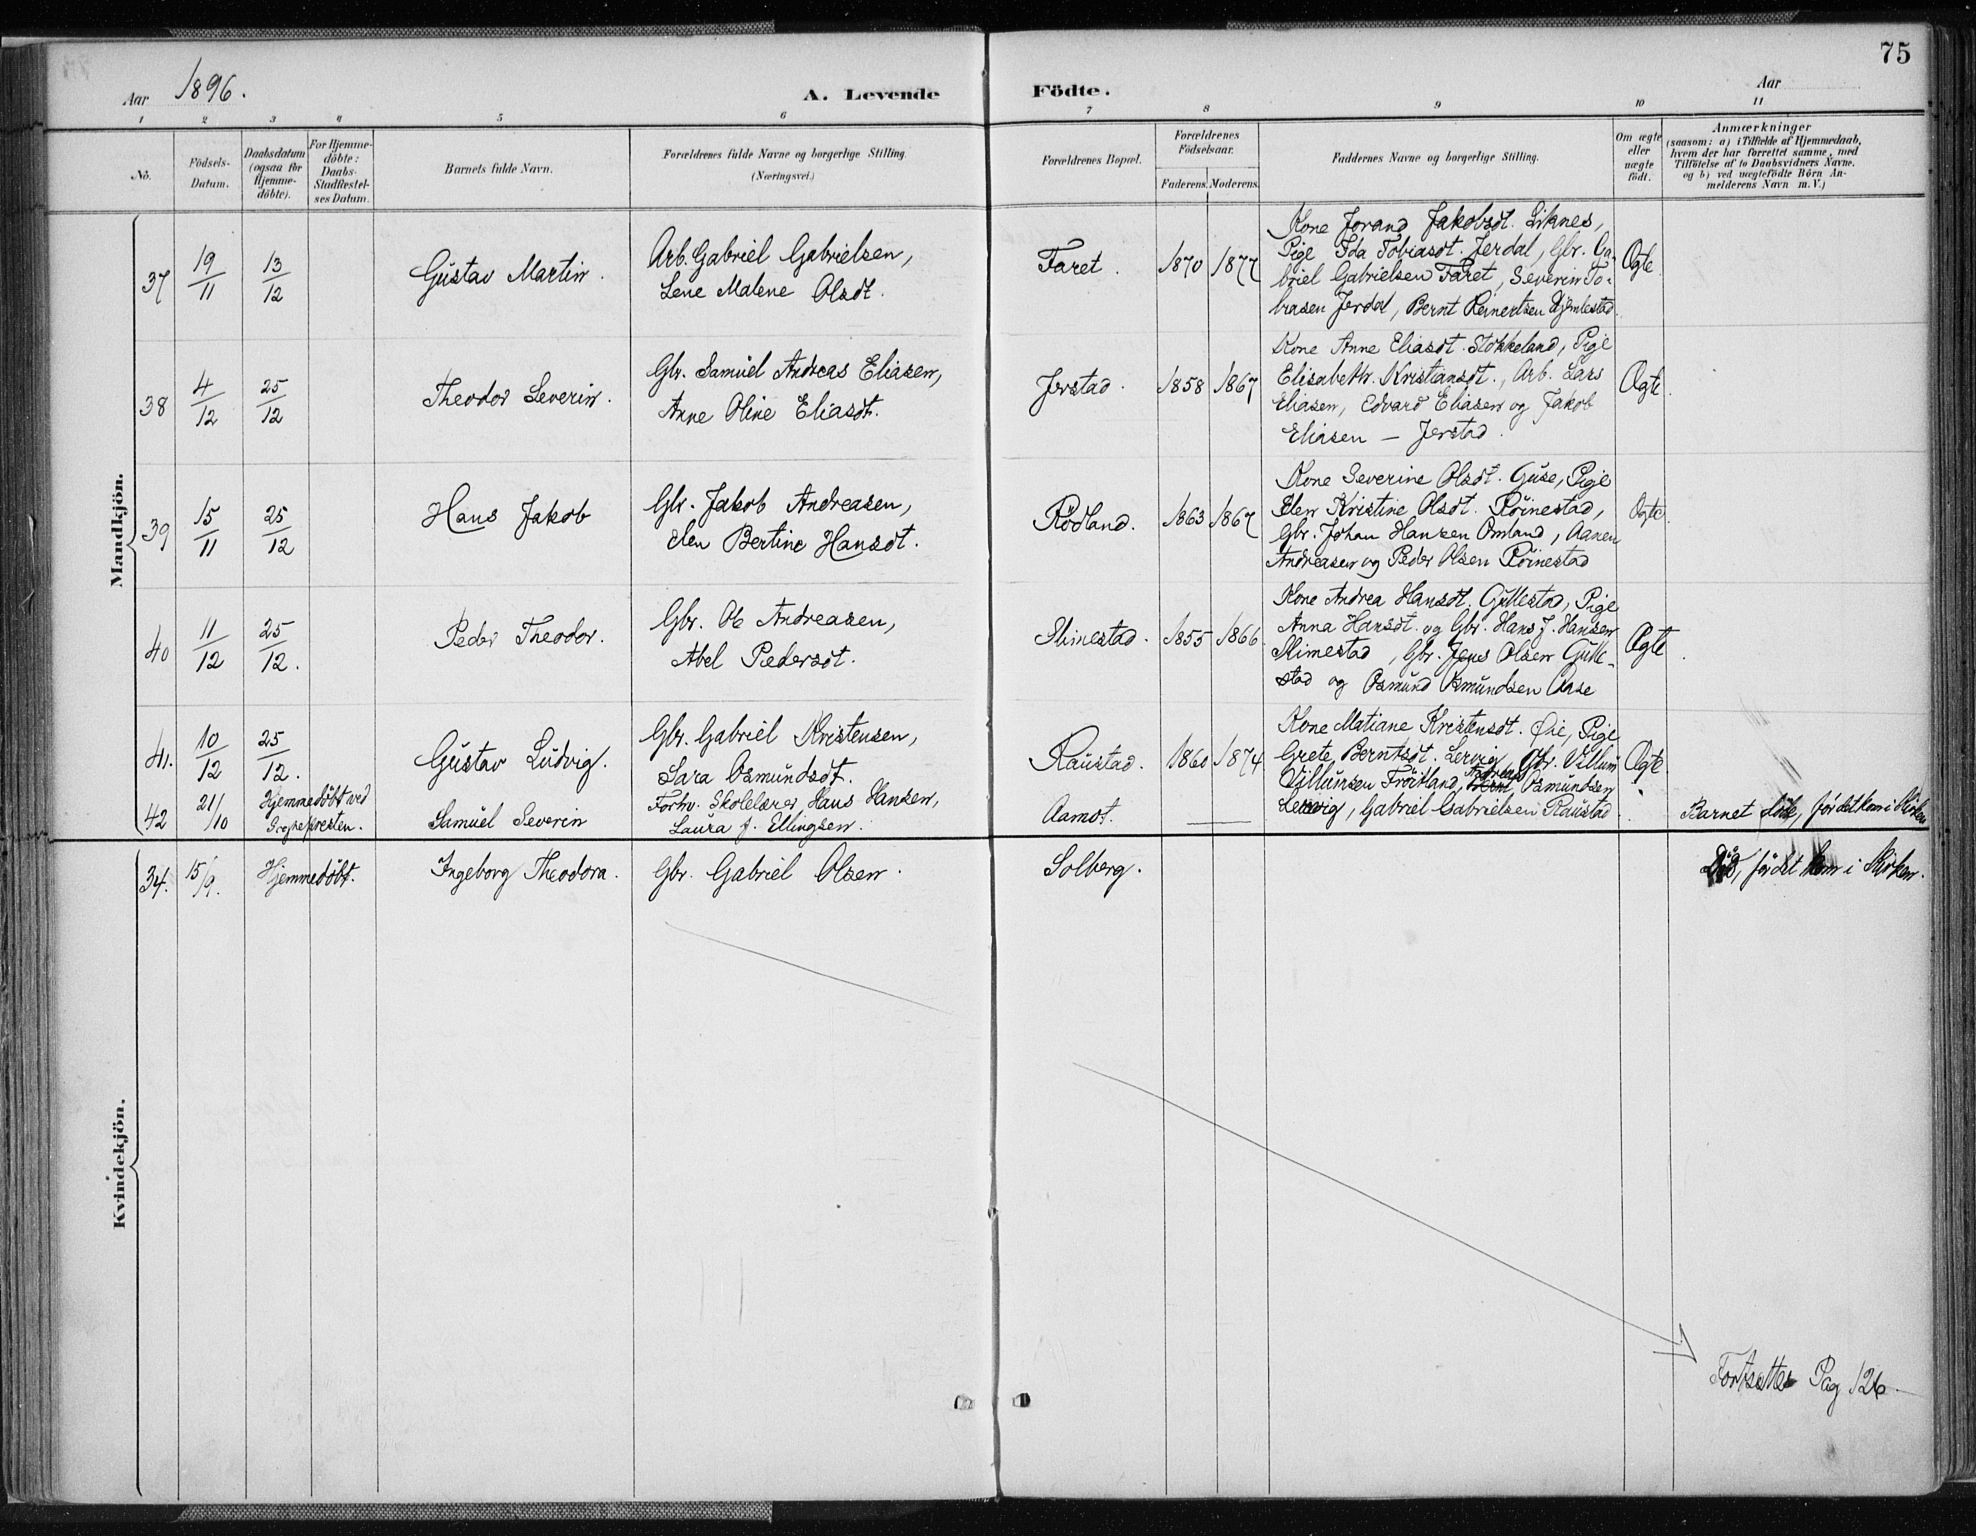 75
Aar 1896.
A. Levende Födte.
Aar
1 2 3 4 5 6 7 8 9 10 11
No.
Födsels-Datum.
Daabsdatum (ogsaa för Hjemme-döbte).
For Hjemme-döbte: Daabs-Stadfæstel-ses Datum.
Barnets fulde Navn.
Forældrenes fulde Navne og borgerlige Stilling.
(Næringsvei.)
Forældrenes Bopæl.
Forældrenes Födselsaar.
Faderens. Moderens.
Faddernes Navne og borgerlige Stilling.
Om ægte eller uægte födt.
Anmærkninger
(saasom: a) i Tilfælde af Hjemmedaab,
hvem der har forrettet samme, med
Tilföielse af to Daabsvidners Navne,
og b) ved uægtefödte Börn An-
melderens Navn m. V.)
Mandkjön.
37 19/11 13/12 Gustav Martin.
Arb. Gabriel Gabrielsen,
Lene Malene Olsdt.
Faret. 1870 1877
Kone Jorand Jakobsdt. Liknes,
Pige Ida Tobiasdt. Jerdal, Gbr. Ga-
briel Gabrielsen Faret, Severin To-
biasen Jerdal, Bernt Reinertsen Hjemlestad.
Ægte
38 4/12 25/12 Theodor Severin.
Gbr. Samuel Andreas Eliasen,
Anne Oline Eliasdt.
Jerstad. 1858 1867
Kone Anne Eliasdt. Stokkeland, Pige
Elisabeth Kristiansdt., Arb. Lars
Eliasen, Edvard Eliasen og Jakob
Eliasen — Jerstad.
Ægte
39 15/11 25/12 Hans Jakob
Gbr. Jakob Andreasen,
Elen Bertine Hansdt.
Rödland. 1863 1867
Kone Severine Olsdt. Guse, Pige
Elen Kristine Olsdt. Röinestad,
Gbr. Johan Hansen Omland, Aanen
Andreasen og Peder Olsen Röinestad
Ægte
40 11/12 25/12. Peder Theodor.
Gbr. Ole Andreasen,
Abel Pedersdt.
Slimestad. 1855 1866
Kone Andrea Hansdt. Gullestad, Pige
Anna Hansdt. og Gbr. Hans J. Hansen
Slimestad, Gbr. Jens Olsen Gulle-
stad og Osmund Osmundsen Aase
Ægte
41. 10/12 25/12. Gustav Ludvig.
Gbr. Gabriel Kristensen,
Sara Osmundsdt.
Raustad. 1860 1874
Kone Matiane Kristensdt. Öie, Pige
Grete Berntsdt. Lervig, Gbr. Villum
Villumsen Tröitland, Andreas Osmundsen
Lervig, Gabriel Gabrielsen Raustad
Ægte.
42 21/10 Hjemmedöbt ved
Sogneprest​en.
Samuel Severin
Forhv. Skolelærer Hans Hansen,
Laura J. Ellingsen.
Aamot.
Barnet döde, för det kom i Kirken
Kvindekjön.
34. 15/9. Hjemmedöbt. Ingeborg Theodora. Gbr. Gabriel Olsen. Solberg.
Död, för det kom i Kirken.
Fortsættes Pag 126.